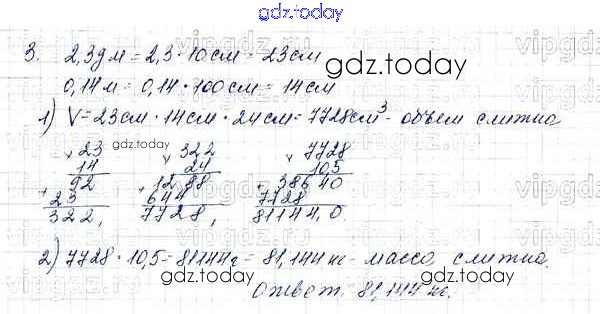 gdz.today
3. 2,3 дм = 2,3 · 10 см = 23 см
0,14 м = 0,14 · 100 см = 14 см
gdz.today
1) V = 23 см · 14 см · 24 см = 7728 см³ - объем слитка
gdz.today
× 23 × 322 × 7728
14 24 10,5
+ 92 + 1288 + 38640
23 644 7728
322, 7728, 81144,0
2) 7728 · 10,5 = 81144 г = 81,144 кг - масса слитка.
gdz.today
Ответ: 81,144 кг.
gdz.today